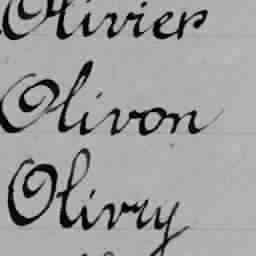 Olivier
Olivon
Olivry